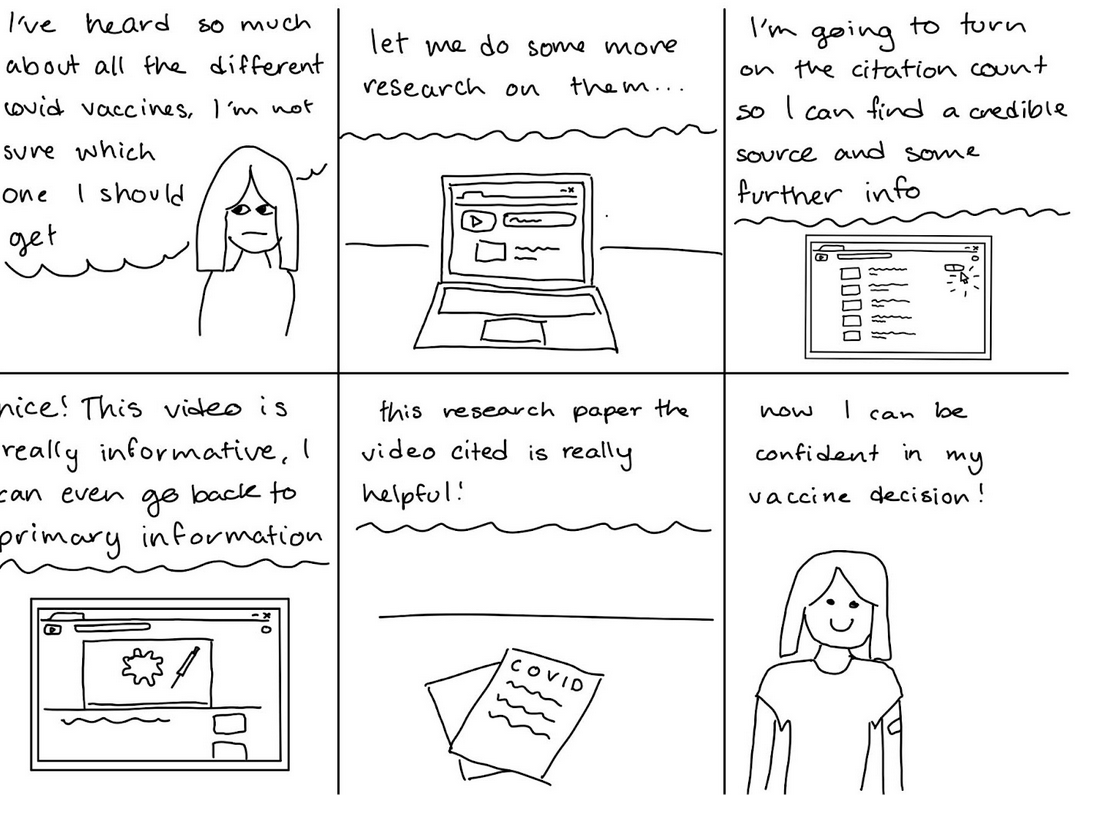 I've heard so much
about all the different
covid vaccines, I'm not
sure which
one I should
get
let me do some more
research on them...
I'm going to turn
on the citation count
so I can find a credible
source and some
further info
nice! This video is
really informative, I
can even go back to
primary information
this research paper the
video cited is really
helpful!
COVID
now I can be
confident in my
vaccine decision!